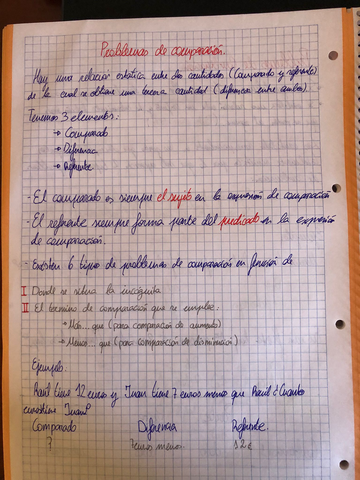 Problemas de comparación.
Hay una relación estática entre dos cantidades (Comparado y referente)
de la cual se obtiene una tercera cantidad (diferencia entre ambos)
Tenemos 3 elementos:
→ Comparado
→ Diferencia
→ Referente
- El comparado es siempre el sujeto en la expresión de comparación
- El referente siempre forma parte del predicado en la expresión
de comparación.
- Existen 6 tipos de problemas de comparación en función de
I Donde se situa la incógnita
II El termino de comparación que se emplee:
→ Más... que (para comparación de aumento)
→ Menos... que (para comparación de disminución)
Ejemplo:
Raúl tiene 12 euros y Juan tiene 7 euros menos que Raúl ¿Cuanto
tiene Juan?
Comparado Diferencia Referente
? 7euros menos. 12€